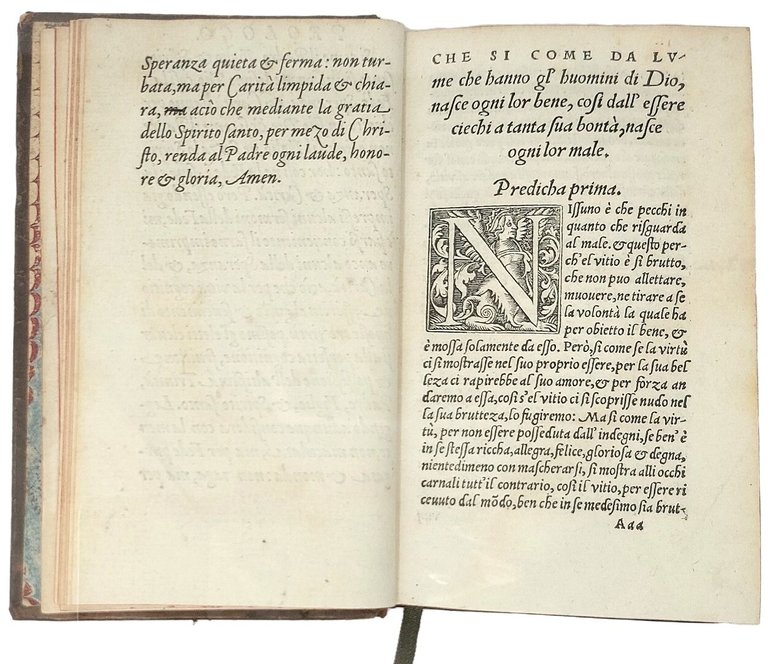 Speranza quieta & ferma: non tur-
bata, ma per Carità limpida & chia-
ra, ma aciò che mediante la gratia
dello Spirito santo, per mezo di Chri-
sto, renda al Padre ogni laude, hono-
re & gloria, Amen.
CHE SI COME DA LV-
me che hanno gl' huomini di Dio,
nasce ogni lor bene, così dall' essere
ciechi a tanta sua bontà, nasce
ogni lor male.
Predicha prima.
NIssuno è che pecchi in
quanto che risguarda
al male. & questo per-
ch'el vitio è sì brutto,
che non puo allettare,
muouere, ne tirare a se
la volontà la quale ha
per obietto il bene, &
è mossa solamente da esso. Però, sì come se la virtù
ci si mostrasse nel suo proprio essere, per la sua bel
lezza ci rapirebbe al suo amore, & per forza an
daremo a essa, così s'el vitio ci si scoprisse nudo nel
la sua bruttezza, lo fugiremo: Ma sì come la vir-
tù, per non essere posseduta dall' indegni, se ben' è
in se stessa riccha, allegra, felice, gloriosa & degna,
nientedimeno con mascherarsi, si mostra alli occhi
carnali tutt'il contrario, così il vitio, per essere ri
ceuuto dal mõdo, ben che in se medesimo sia brut-
Aaa